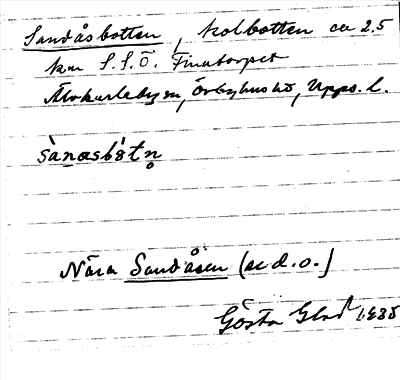 Sandåsbotten, kolbotten ca 2.5
km S.S.Ö. Finntorpet
Älvkarleby sn, Örbyhus hd, Upps. l.
sànasbó̀tn̥
Nära Sandåsen (se d.o.)
Gösta Glad 1935